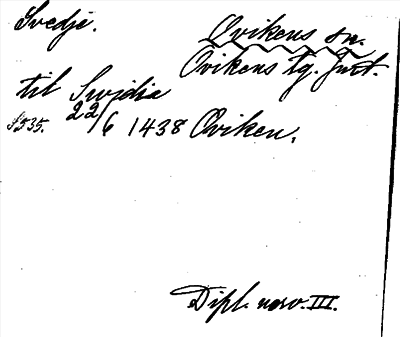 Svedje.
Ovikens sn.
Ovikens tg. Jmt.
til Swidia
s535. 22/6 1438 Oviken.
Dipl. norv. III.